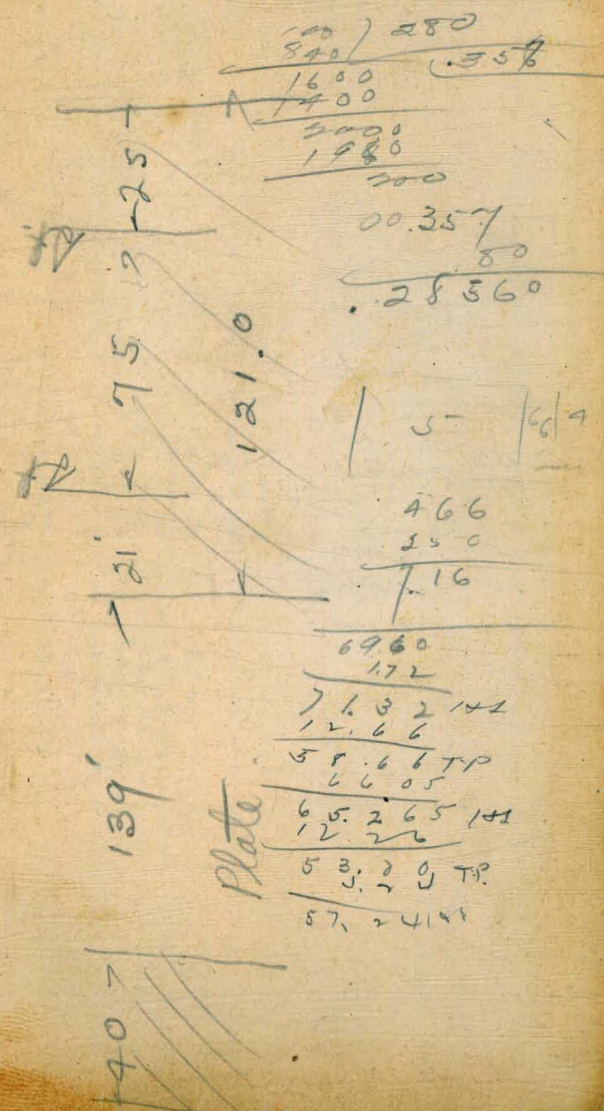 280
840
.357
1600
1400
2000
1980
200
00.357
80
.28560
25
75
121.0
21'
139'
40
Plate
5
466
250
7.16
69.60
1.72
71.32 HI
12.66
58.66 TP
6605
65.265 HI
12.26
53.20 T.P.
57.24